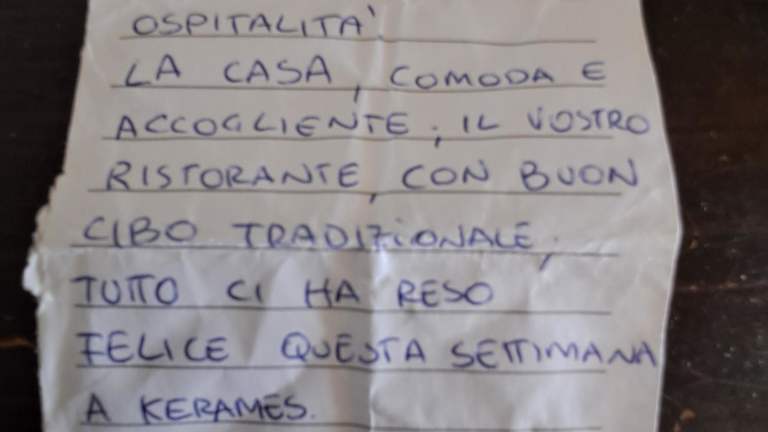 OSPITALITA'
LA CASA, COMODA E
ACCOGLIENTE; IL VOSTRO
RISTORANTE, CON BUON
CIBO TRADIZIONALE;
TUTTO CI HA RESO
FELICE QUESTA SETTIMANA
A KERAMES.